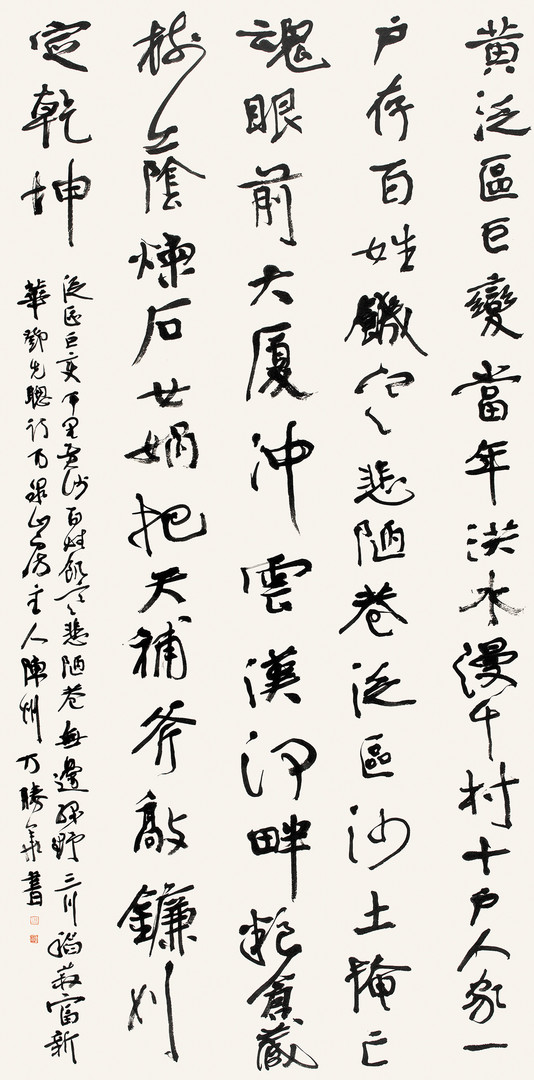 黄泛區巨變當年洪水漫千村十戶人家一
戶存百姓饑寒悲陋巷泛區沙土掩亡
魂眼前大廈沖雲漢河畔粮倉藏
樹蔭煉石女媧把天補斧敲鐮刈
定乾坤
泛區巨變百里黃沙百姓飢寒悲陋巷無邊綠野三川稻菽富新
華鄧先聰詩百泉山房主人陳州万勝華書